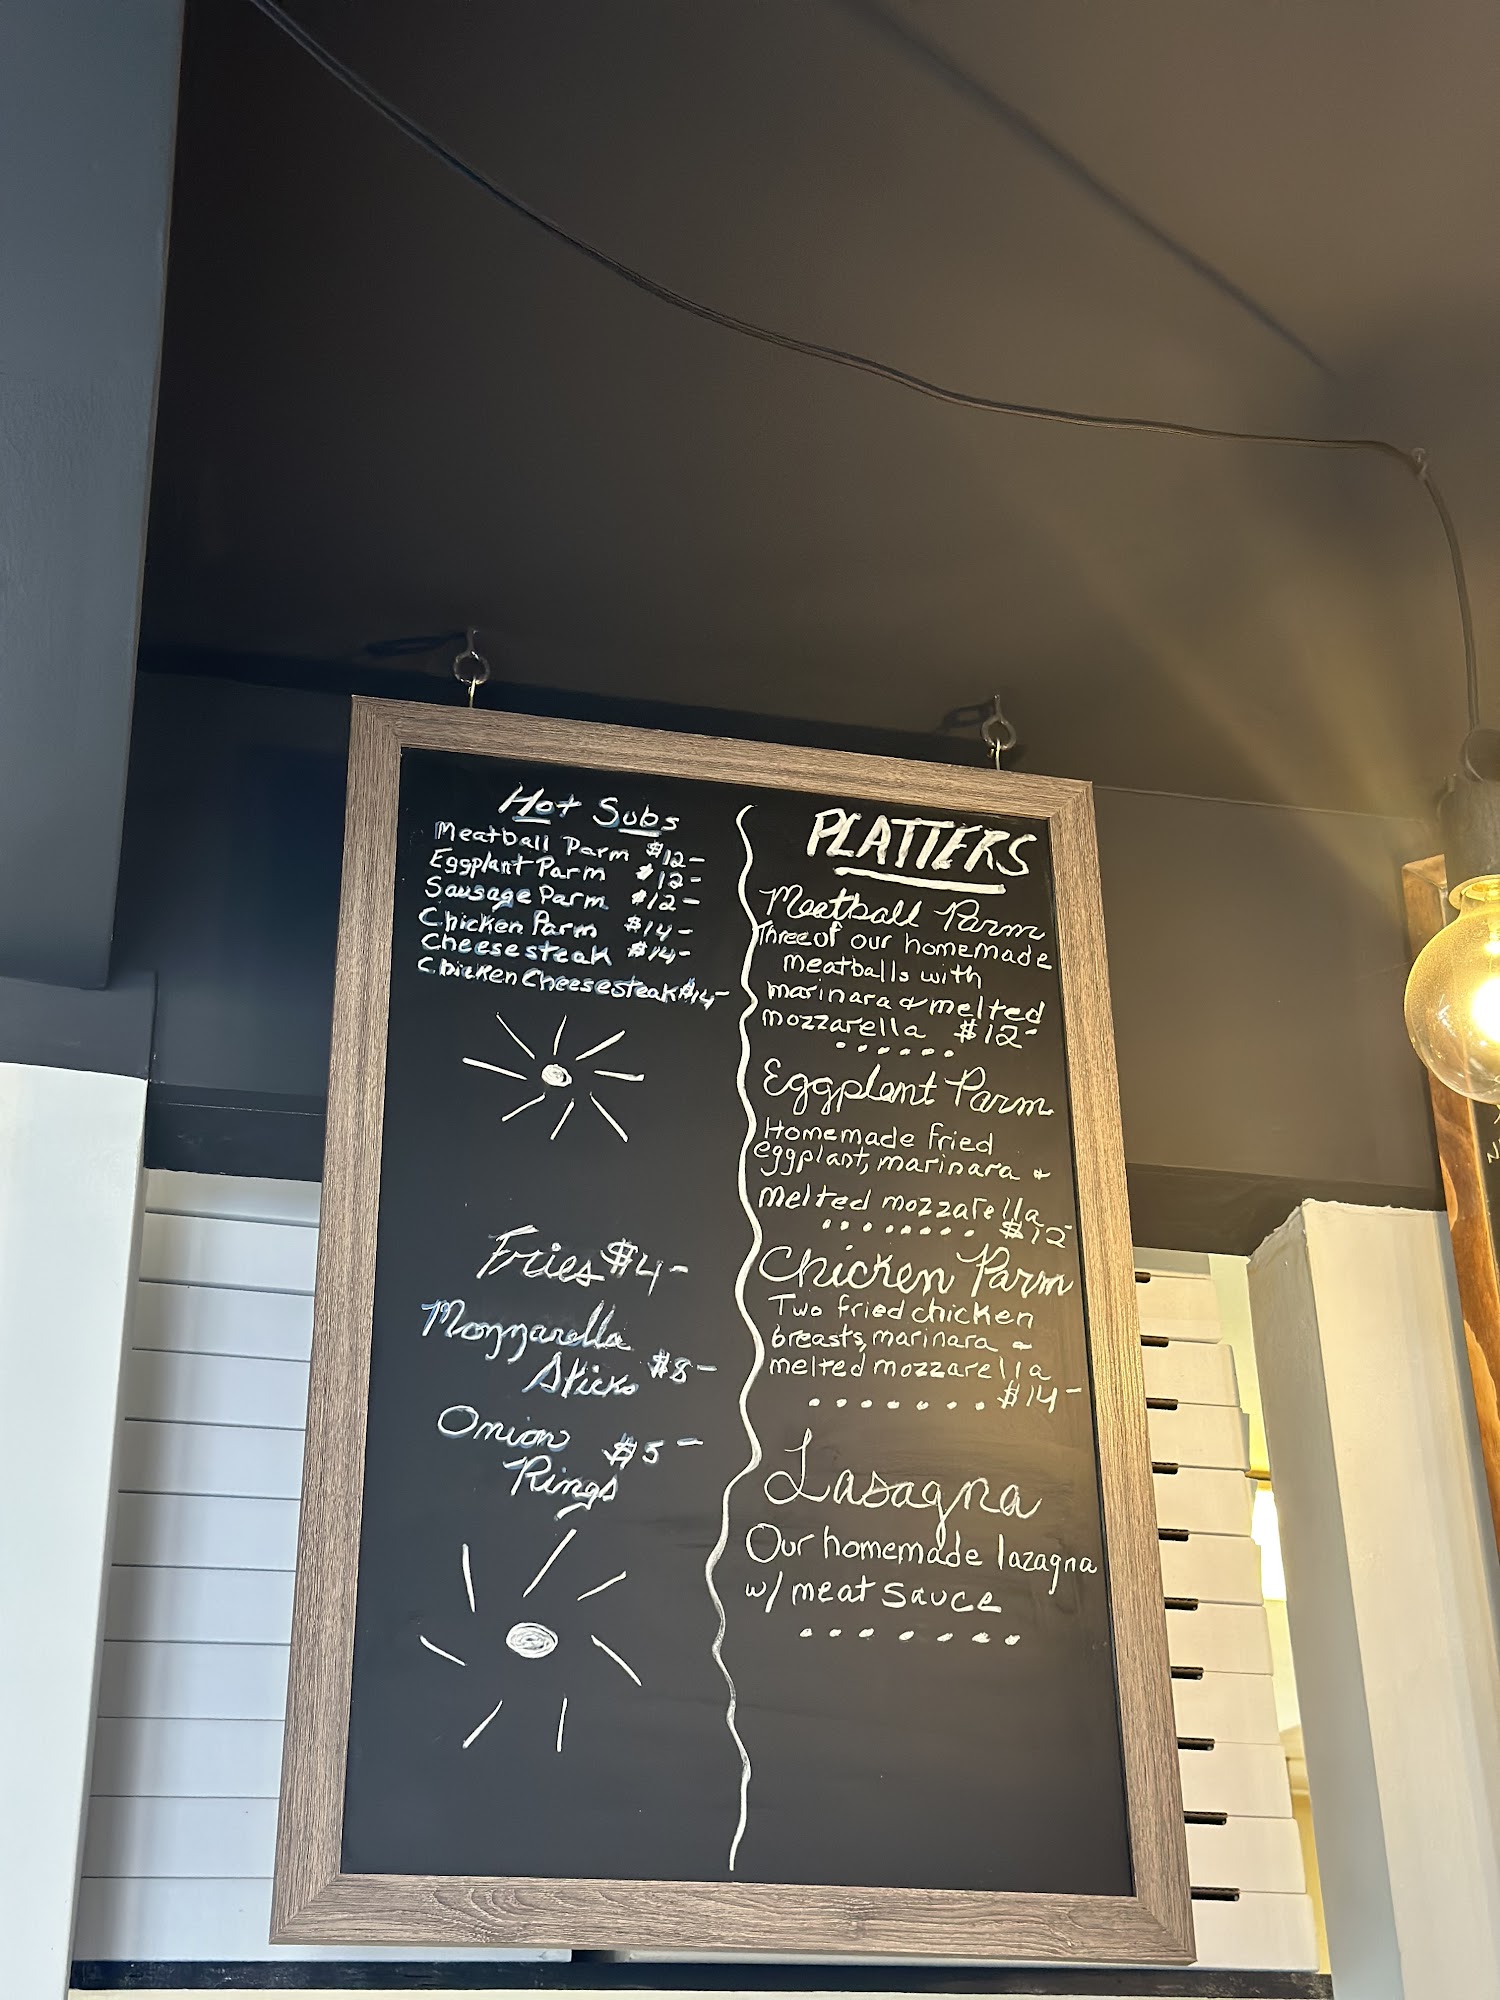 Hot Subs
Meatball Parm $12-
Eggplant Parm $12-
Sausage Parm $12-
Chicken Parm $14-
Cheesesteak $14-
Chicken Cheesesteak $14-
Fries $4-
Mozzarella
Sticks $8-
Onion
Rings $5-
PLATTERS
Meatball Parm
Three of our homemade
meatballs with
marinara & melted
mozzarella $12-
Eggplant Parm
Homemade fried
eggplant, marinara &
melted mozzarella
$12-
Chicken Parm
Two fried chicken
breasts, marinara &
melted mozzarella
$14-
Lasagna
Our homemade lazagna
w/ meat sauce